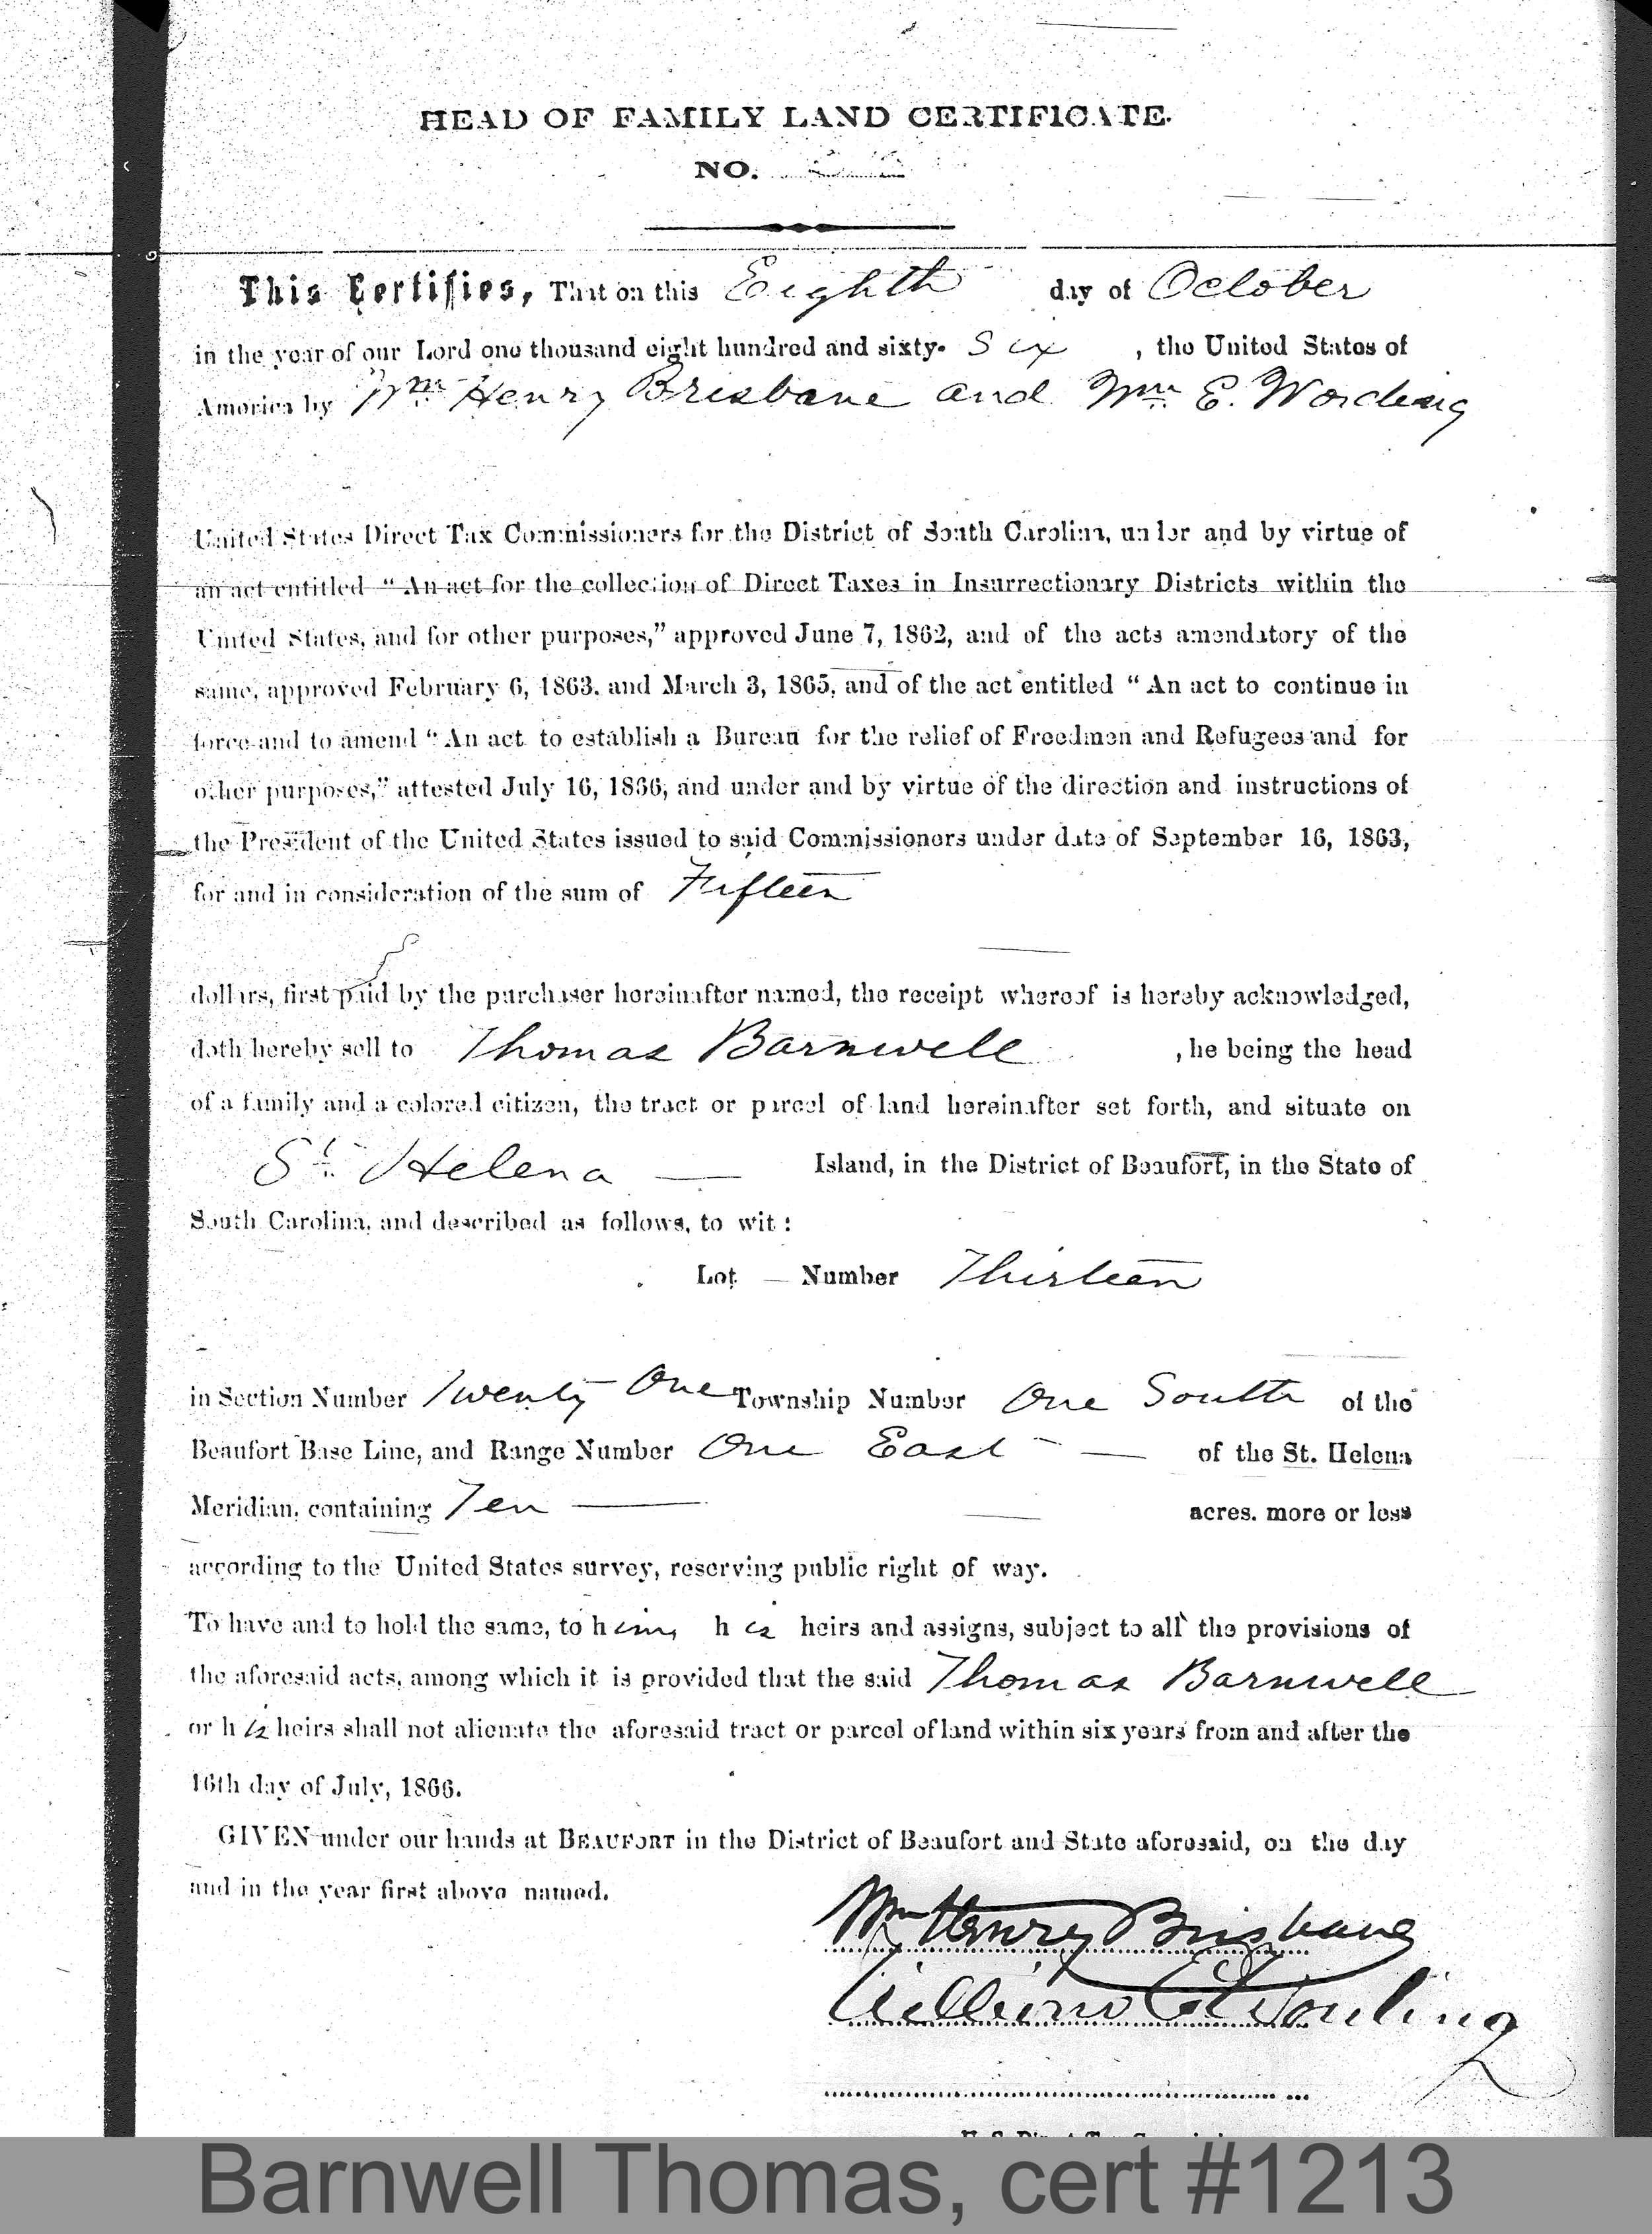 HEAD OF FAMILY LAND CERTIFICATE.
NO.
This Certifies, That on this Eighth day of October
in the year of our Lord one thousand eight hundred and sixty- Six , the United States of
America by Wm Henry Brisbane and Wm E. Wording
United States Direct Tax Commissioners for the District of South Carolina, under and by virtue of
an act entitled "An act for the collection of Direct Taxes in Insurrectionary Districts within the
United States, and for other purposes," approved June 7, 1862, and of the acts amendatory of the
same, approved February 6, 1863, and March 3, 1865, and of the act entitled "An act to continue in
force and to amend "An act to establish a Bureau for the relief of Freedmen and Refugees and for
other purposes," attested July 16, 1866, and under and by virtue of the direction and instructions of
the President of the United States issued to said Commissioners under date of September 16, 1863,
for and in consideration of the sum of Fifteen
dollars, first paid by the purchaser hereinafter named, the receipt whereof is hereby acknowledged,
doth hereby sell to Thomas Barnwell , he being the head
of a family and a colored citizen, the tract or parcel of land hereinafter set forth, and situate on
St. Helena — Island, in the District of Beaufort, in the State of
South Carolina, and described as follows, to wit:
Lot — Number Thirteen
in Section Number Twenty One Township Number One South of the
Beaufort Base Line, and Range Number One East — of the St. Helena
Meridian, containing Ten — acres. more or less
according to the United States survey, reserving public right of way.
To have and to hold the same, to him, his heirs and assigns, subject to all the provisions of
the aforesaid acts, among which it is provided that the said Thomas Barnwell
or his heirs shall not alienate the aforesaid tract or parcel of land within six years from and after the
16th day of July, 1866.
GIVEN under our hands at BEAUFORT in the District of Beaufort and State aforesaid, on the day
and in the year first above named.
Wm Henry Brisbane
William E. Wording
Barnwell Thomas, cert #1213